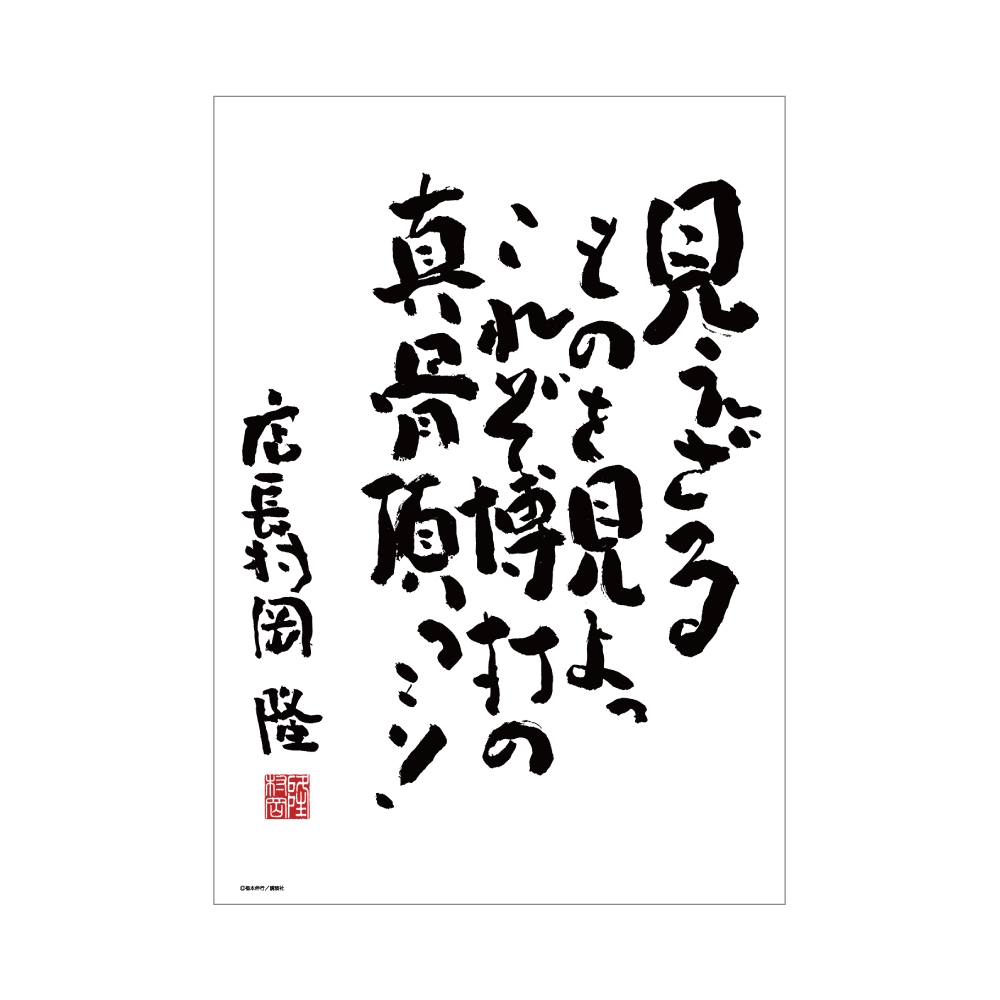 見えざる
ものを見よっ
これぞ博打の
真骨頂ッ…ッ!
店長村岡 隆
村岡隆
©福本伸行/講談社